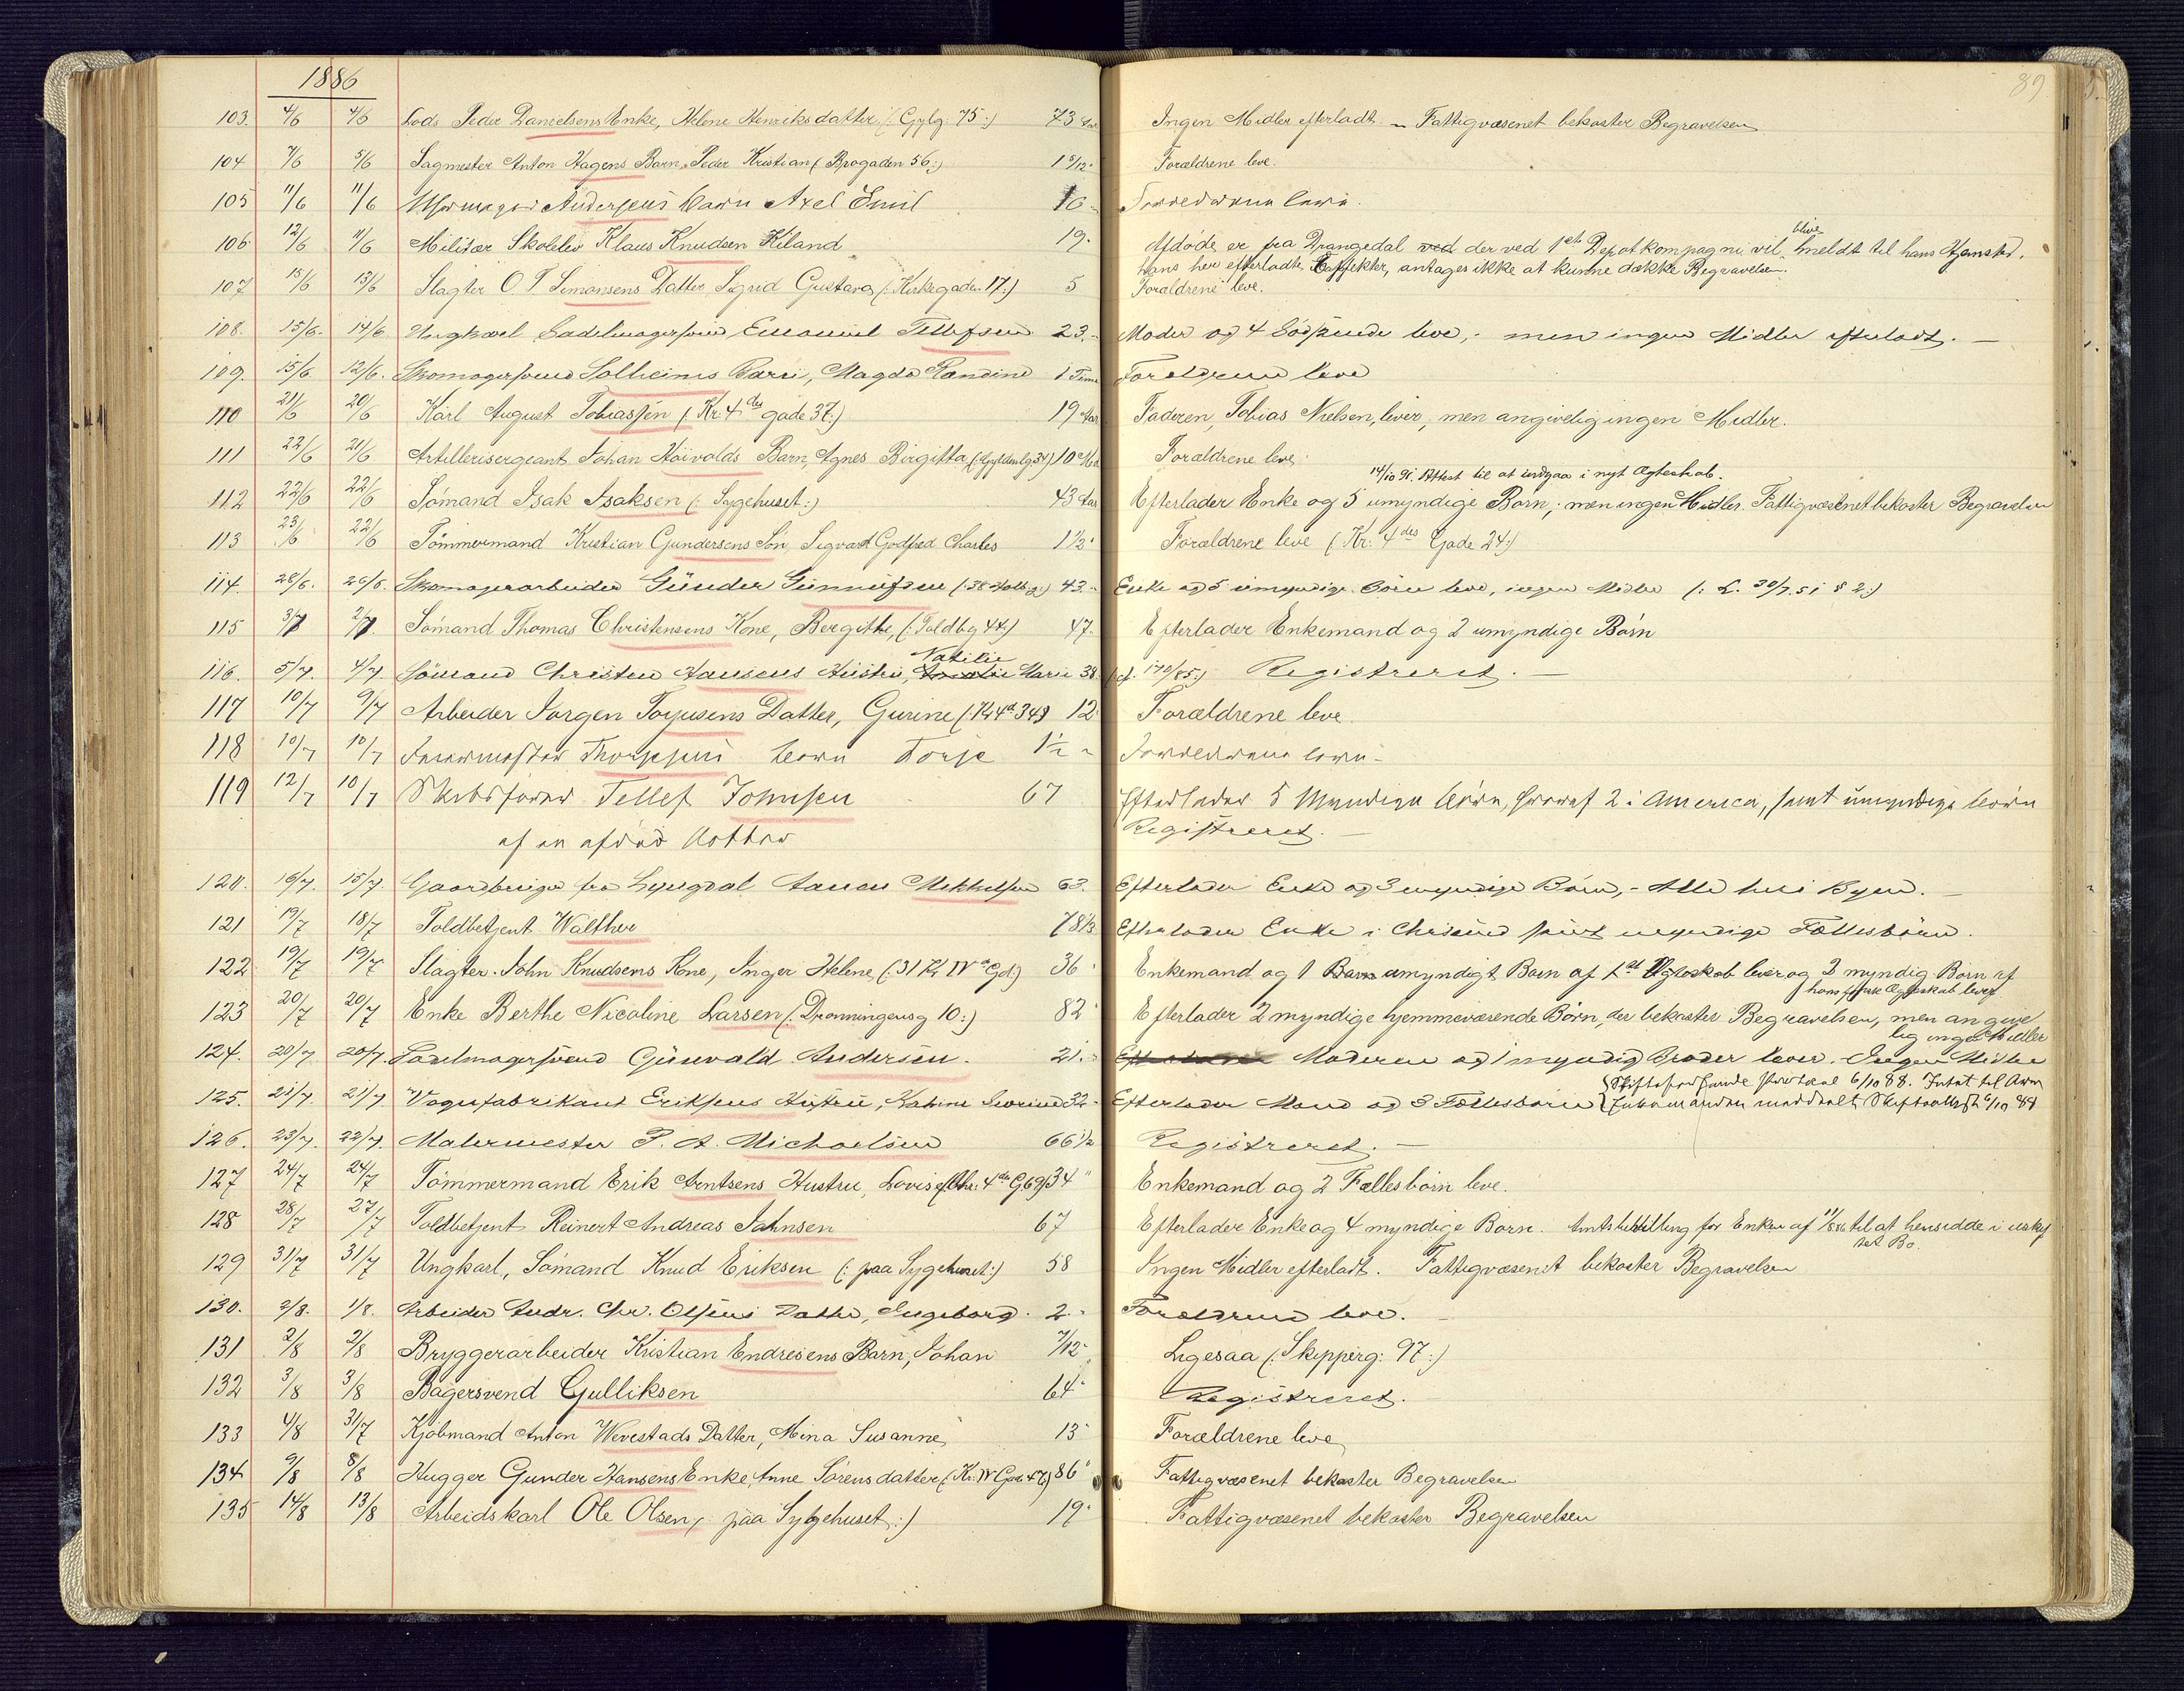 1886
89
103. 4/6 4/6 Lods Peder Danielsens Enke, Helene Henriksdatter (: Gylg: 75 :) 73 Aar Ingen Midler efterladt. – Fattigvæsenet bekoster Begravelsen
104 7/6 5/6 Sagmester Anton Hagens Barn Peder Kristian (: Brogaden 56 :) 1 5/12 Forældrene leve.
105 11/6 11/6 Andersens barn Axel Emil Forældrene leve.
106 12/6 11/6 Militær Skoleelev Klaus Knudsen Kiland 19. Afdøde er fra Drangedal ved der ved 1ste Depotkompagni vil blive meldt til hans Hjemsted.
hans her efterladte Effekter, antages ikke at kunne dække Begravelsen.
107 15/6 13/6 Slagter O T Simonsens Datter Sigrid Gustava (: Kirkegaden 17 :) 5 Forældrene leve.
108. 15/6. 14/6 Ungkarl Sadelmagersvend Emanuel Tellefsen 23. Moder og 4 Sødskende leve, – men ingen Midler efterladt. –
109. 15/6 12/6. Skomagersvend Solheims Barn, Magda Randine 1 Time Forældrene leve
110 21/6 20/6 Karl August Tobiassen (: Kr. 4des gade 37 :) 19 Aar Faderen, Tobias Nielsen, lever, men angivelig ingen Midler.
111 22/6 21/6 Artillerisergeant Johan Høivolds Barn, Agnes Birgitta (: Gyldenlg 34) 10 Md Forældrene leve.
14/10 91. Attest til at indgaa i nyt Ægteskab.
112 22/6 22/6 Sømand Isak Isaksen (: Sygehuset :) 43 Aar Efterlader Enke og 5 umyndige Børn; men ingen Midler. Fattigvæsenet bekoster Begravelsen
113 23/6 22/6 Tømmermand Kristian Gundersens Søn, Sigvart Godfred Charles 1 1/2 Forældrene leve (: Kr: 4des Gade 24 :)
114. 28/6. 26/6. Skomagerarbeider Gunder Gunnufsen (: 38 Holb g) 43. Enke og 5 umyndige Børn leve, ingen Midler (: L. 30/7. 51 § 2 :)
115 3/7 2/7. Sømand Thomas Christensens Kone, Bergithe, (: Toldbg 44 :) 47. Efterlader Enkemand og 2 umyndige Børn
116. 5/7. 4/7. Sømand Christen Hansens Hustru, Natilie Marie 38 (cf. 170/85 :) Registreret. –
117 10/7 9/7 Arbeider Jørgen Torjusens Datter, Gurine (: Kr 4d 34) 12 Forældrene leve.
118 10/7 10/7 Thorsens barn Torje 1 1/2 Forældrene leve. –
119 12/7 10/7 Skibsfører Tellef Johnsen 67 Efterlader 5 Myndige børn, hvoraf 2 i America, samt umyndige børn
af en afdød Datter Registreret. –
120. 16/7. 15/7. Gaardbruger fra Lyngdal Aanen Mikkelsen 63. Efterlader Enke og 3 myndige Børn, – Alle her i Byen. –
121 19/7 18/7 Toldbetjent Walther 78 1/2 Efterlader Enke i Chrssund samt myndige Fællesbørn.
122 19/7 19/7 Slagter John Knudsens Kone, Inger Helene, (: 31 Kr IVde Gd :) 36 Enkemand og 1 Barn umyndigt Barn af 1st Ægteskab lever og 2 myndig Børn af
hans første Ægteskab lever
123 20/7 20/7 Enke Berthe Nicoline Larsen (: Dronningensg 10 :) 82 Efterlader 2 myndige hjemmeværende Børn, der bekoster Begravelsen, men angive
lig ingen Midler
124. 20/7. 20/7. Sadelmagersvend Gunvald Andersen. 21. Moderen og 1 myndig Broder lever. Ingen Midler
125. 21/7. 21/7. Vognfabrikant Eriksens Hustru, Kathine Severine 32 Efterlader Mand og 3 Fællesbørn 6/10 88. Intet til Arv
Enkemanden meddealt Skifteattest 6/10 88
126. 23/7. 22/7. Malermester P. A. Michaelsen 66 1/2 Registreret. –
127 24/7 24/7 Tømmermand Erik Arntsens Hustru, Lovise (Chr: 4de G 69) 34 " Enkemand og 2 Fællesbørn leve.
128 28/7 27/7 Toldbetjent Reinert Andreas Jahnsen 67 Efterlader Enke og 4 myndige Børn. Amtsbevilling for Enken af til at hensidde i uskif
tet Bo.
129 31/7 31/7 Ungkarl, Sømand Knud Eriksen (: paa Sygehuset :) 58 Ingen Midler efterladt. Fattigvæsenet bekoster Begravelsen
130. 2/8. 1/8. Arbeider Andr. Chr. Olsens Datter, Ingeborg. 2. Forældrene leve. –
131 2/8 2/8 Bryggerarbeider Kristian Endresens Barn, Johan 7/12 Ligesaa (: Skipperg: 97 :)
132 3/8 3/8 Bagersvend Gulliksen 64 Registreret. –
133 4/8 31/7 Kjøbmand Anton Wevestads Datter, Mina Susanne, 13 Forældrene leve,
134 9/8 8/8 Hugger Gunder Hansens Enke, Anne Sørensdatter (: Kr: IV Gde 46) 86 Fattigvæsenet bekoster Begravelsen
135 14/8 13/8 Arbeidskarl Ole Olsen, paa Sygehuset :) 19 Fattigvæsenet bekoster Begravelsen